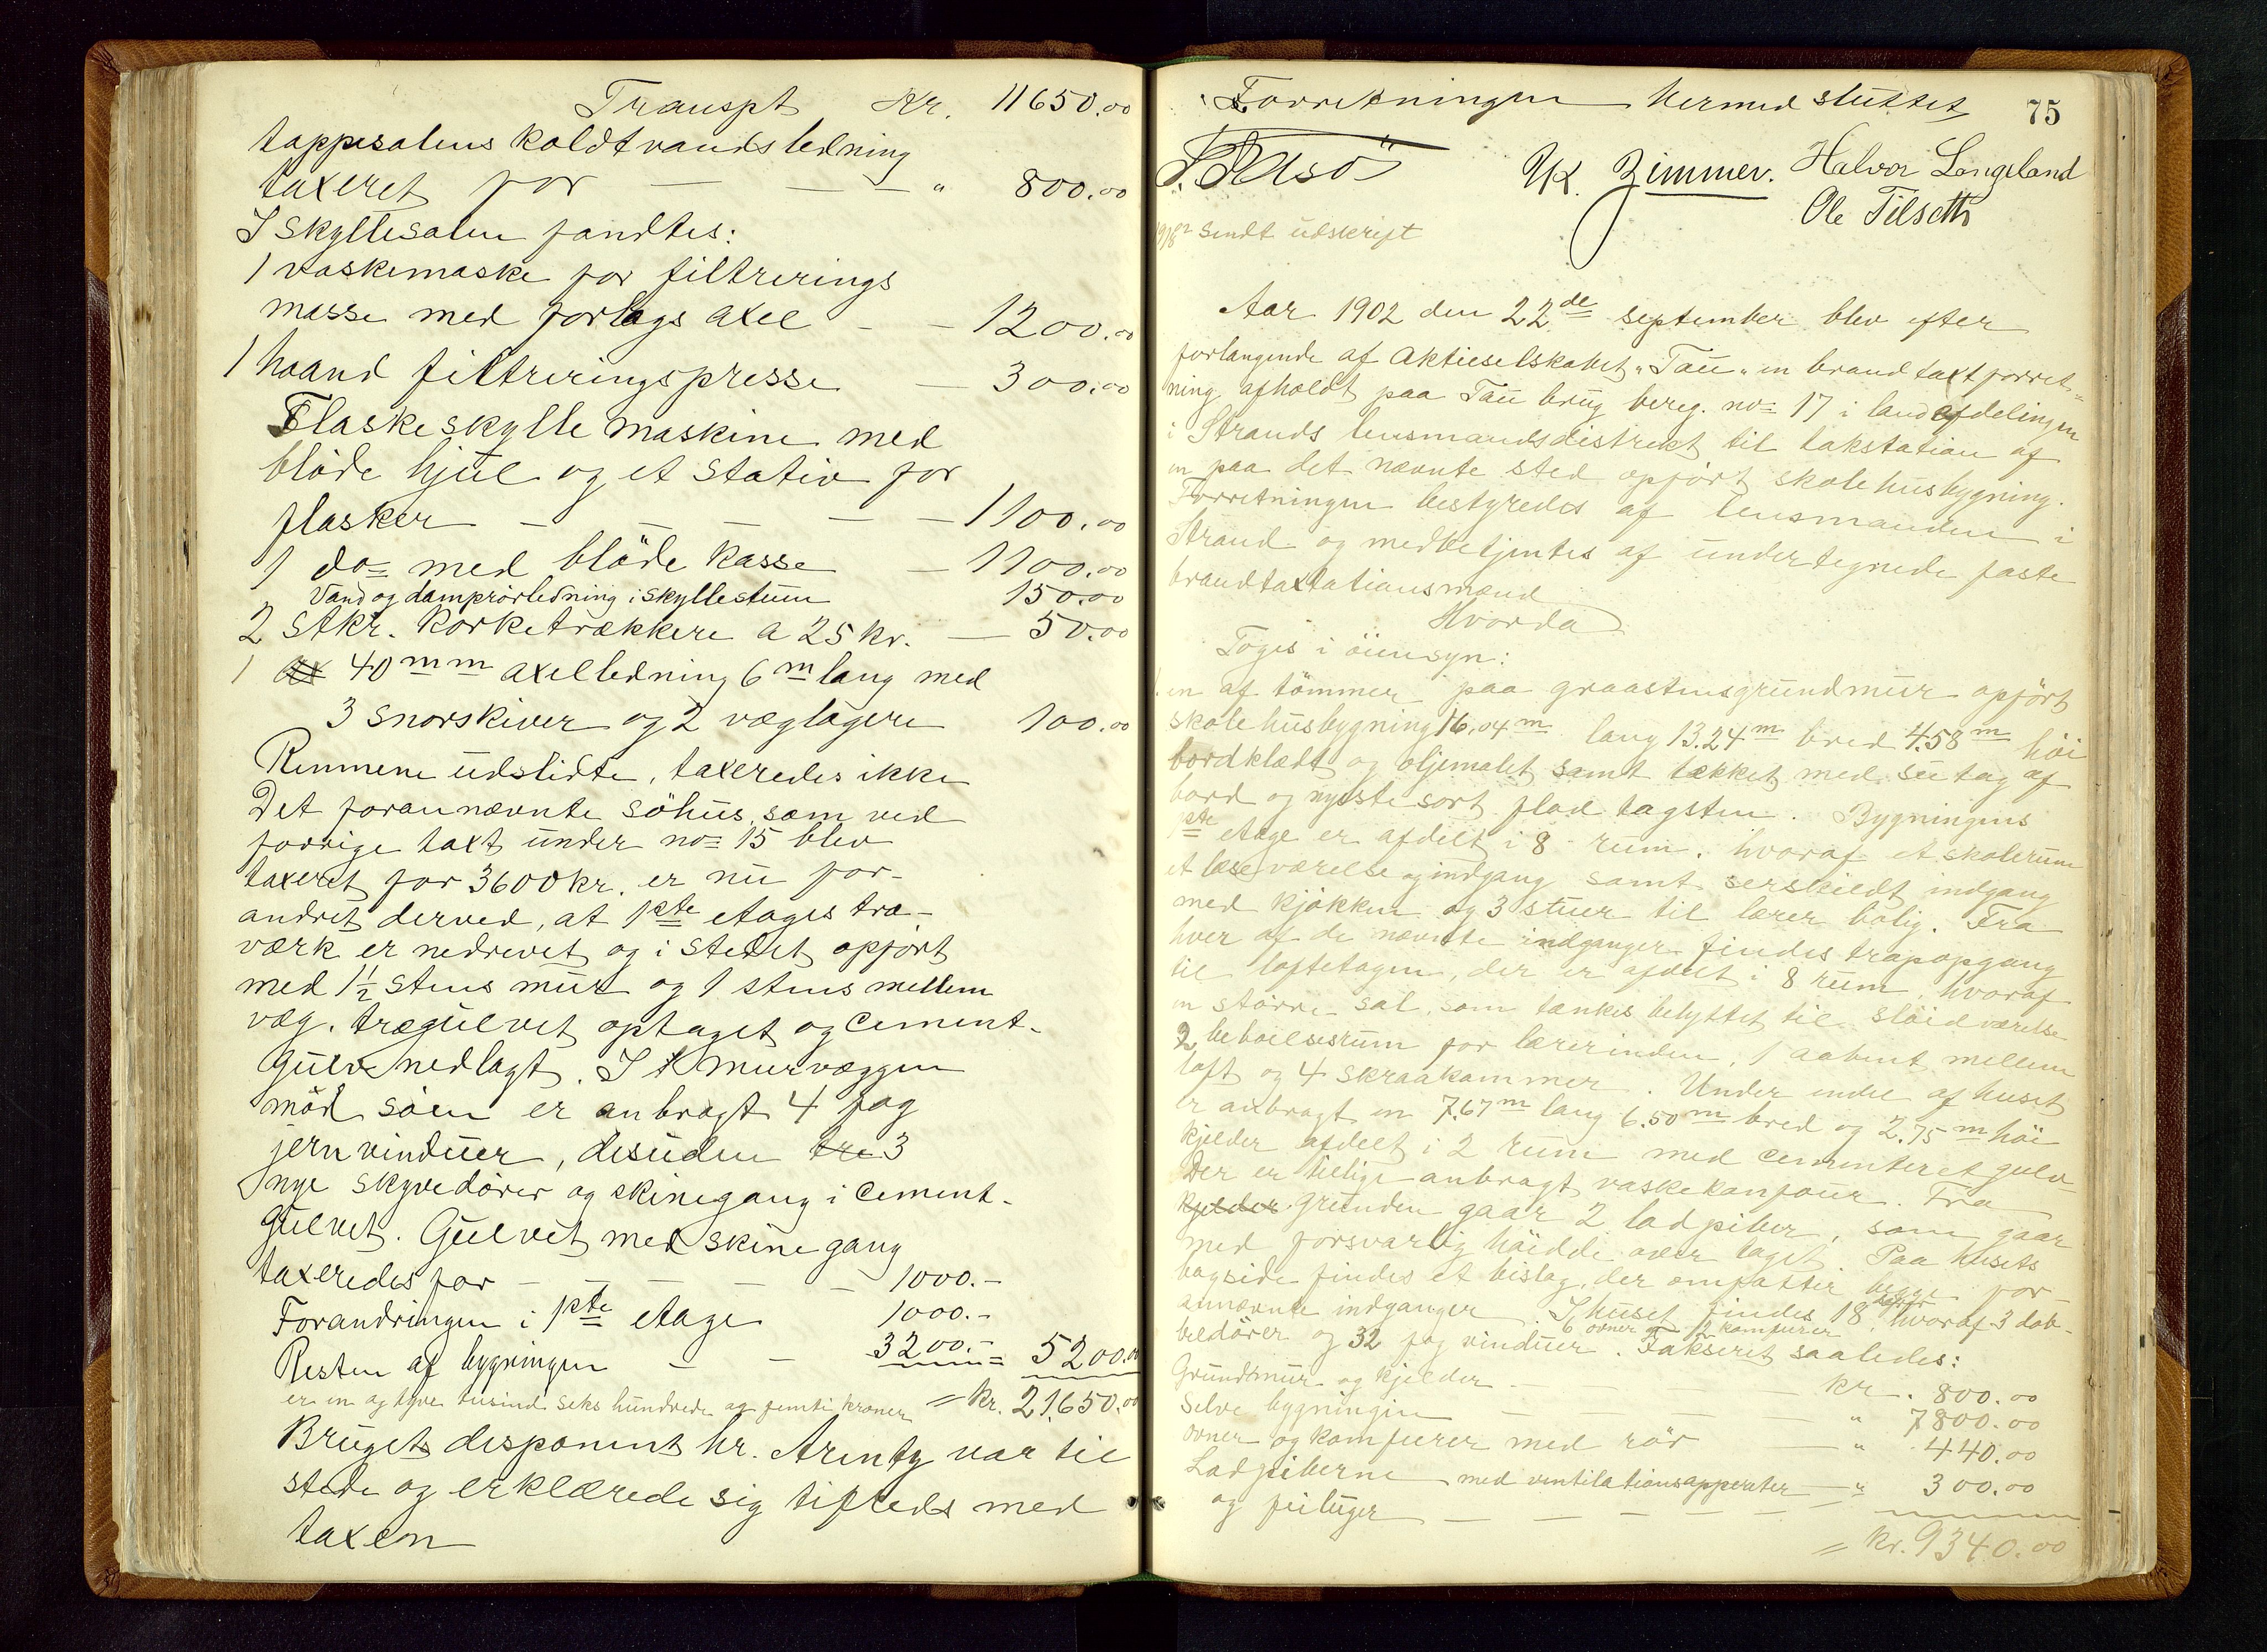 Transpt Kr. 11650.00
tappesalens koldtvandsledning
taxeret for — — — " 800.00
I skyllesalen fandtes:
1 vaskemaske for filtrerings
masse med forlags axel - - 1200.00
1 haand filtreringspresse — 300.00
Flaskeskylle maskine med
blöde hjul og et stativ for
flasker — — — — — 1100.00
1 do= med blöde kasse — 1100.00
Vand og damprörledning i skyllestuen 150.00
2 Stkr. Korketrækkere a 25 kr. — 50.00
1 40 mm axelledning 6 m lang med
3 snorskiver og 2 væglagere 100.00
Remmene udslidte, taxeredes ikke
Det forannævnte söhus, som ved
forrige taxt under no= 15 blev
taxeret for 3600 kr. er nu for-
andret derved, at 1ste etages træ-
værk er nedrevet og i stedet opfört
med 1½ stens mur og 1 stens mellem
væg. trægulvet optaget og cement-
gulv nedlagt. I murvæggen
mod söen er anbragt 4 fag
jernvinduer, desuden tre 3
nye skyvedörer og skinegang i cement-
gulvet. Gulvet med skinegang
taxeredes for — — — — — 1000.-
Forandringen i 1ste etage 1000.-
Resten af bygningen — — 3200.- = 5200.00
er en og tyve tusind seks hundrede og femti kroner = kr. 21,650.00
Brugets disponent hr. Arentz var til
stede og erklærede sig tilfreds med
taxen
Forretningen hermed sluttet 75
K. Zimmer. Halvor Langeland
Ole Tilseth
sendt udskrift
Aar 1902 den 22de september blev efter
forlangende af Aktieselskabet "Tau" en brandtaxtforret-
ning afholdt paa Tau brug bereg. no= 17 i landafdelingen
i Strands lensmandsdistrekt til takstation af
en paa det nævnte sted opfört skolehusbygning.
Forretningen bestyredes af lensmanden i
Strand og medbetjentes af undertegnede faste
brandtaxtationsmænd
Hvorda
Toges i öiensyn:
1. en af tömmer paa graastensgrundmur opfört
skolehusbygning 16,04 m lang 13.24 m bred 4.58 m höi
bordklædt og oljemalet samt tækket med su tag af
bord og nyeste sort flad tagsten. Bygningens
1ste etage er afdelt i 8 rum, hvoraf et skolerum
et læseværelse og indgang samt serskildt indgang
med kjökken og 3 stuer til lærer bolig. Fra
hver af de nævnte indganger findes trapopgang
til loftetagen, der er afdelt i 8 rum, hvoraf
en större sal, som tænkes benyttet til slöidværelse
2 beboelsesrum for lærerinden, 1 aabent mellem
loft og 4 skraakammer. Under endel af huset
er anbragt en 7.67 m lang 6.50 m bred og 2.75 m höi
kjelder afdelt i 2 rum med cementeret gulv
Der er tillige anbragt vaskekomfour. Fra
kjelder grunden gaar 2 ladpiber, som gaar
med forsvarlig höidde over taget. Paa husets
bagside findes et bislag, der omfatter begge for-
annævnte indganger. I huset findes 18 dörer hvoraf 3 dob-
beldörer og 32 fag vinduer. 6 ovner 2 komfurer Takseret saaledes:
Grundmur og kjelder — — — kr. 800.00
Selve bygningen — — — " 7800.00
ovner og komfurer med rör — " 440.00
Ladpiberne med ventilationsapperater — " 300.00
og feiluger — — — — —
= kr. 9340.00